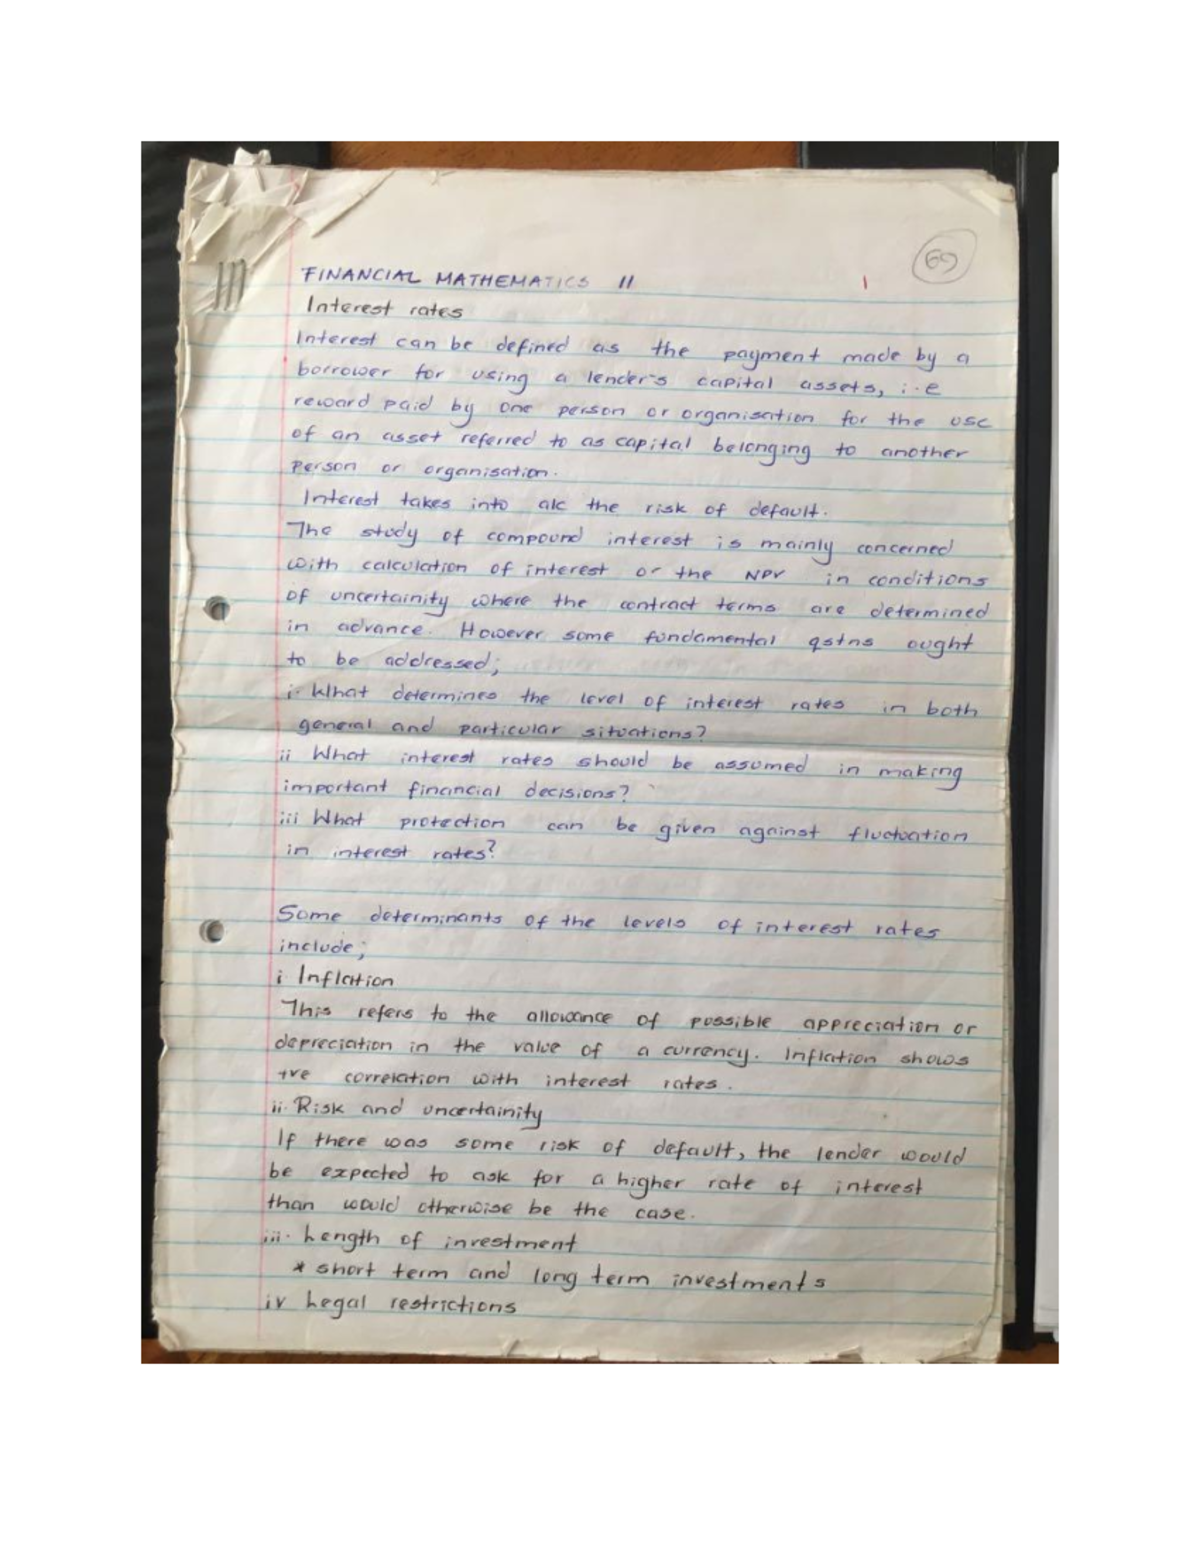 69
FINANCIAL MATHEMATICS II 1
Interest rates
Interest can be defined as the payment made by a
borrower for using a lender's capital assets, i.e
reward paid by one person or organisation for the use
of an asset referred to as capital belonging to another
person or organisation.
Interest takes into a/c the risk of default.
The study of compound interest is mainly concerned
with calculation of interest or the NPV in conditions
of uncertainity where the contract terms are determined
in advance. However some fundamental qstns ought
to be addressed;
i. What determines the level of interest rates in both
general and particular situations?
ii What interest rates should be assumed in making
important financial decisions?
iii What protection can be given against fluctuation
in interest rates?
Some determinants of the levels of interest rates
include;
i Inflation
This refers to the allowance of possible appreciation or
depreciation in the value of a currency. Inflation shows
+ve correlation with interest rates.
ii. Risk and uncertainity
If there was some risk of default, the lender would
be expected to ask for a higher rate of interest
than would otherwise be the case.
iii. Length of investment
* short term and long term investments
iv Legal restrictions